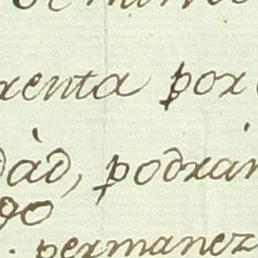 renta por
dàd, podràn
go
permanez